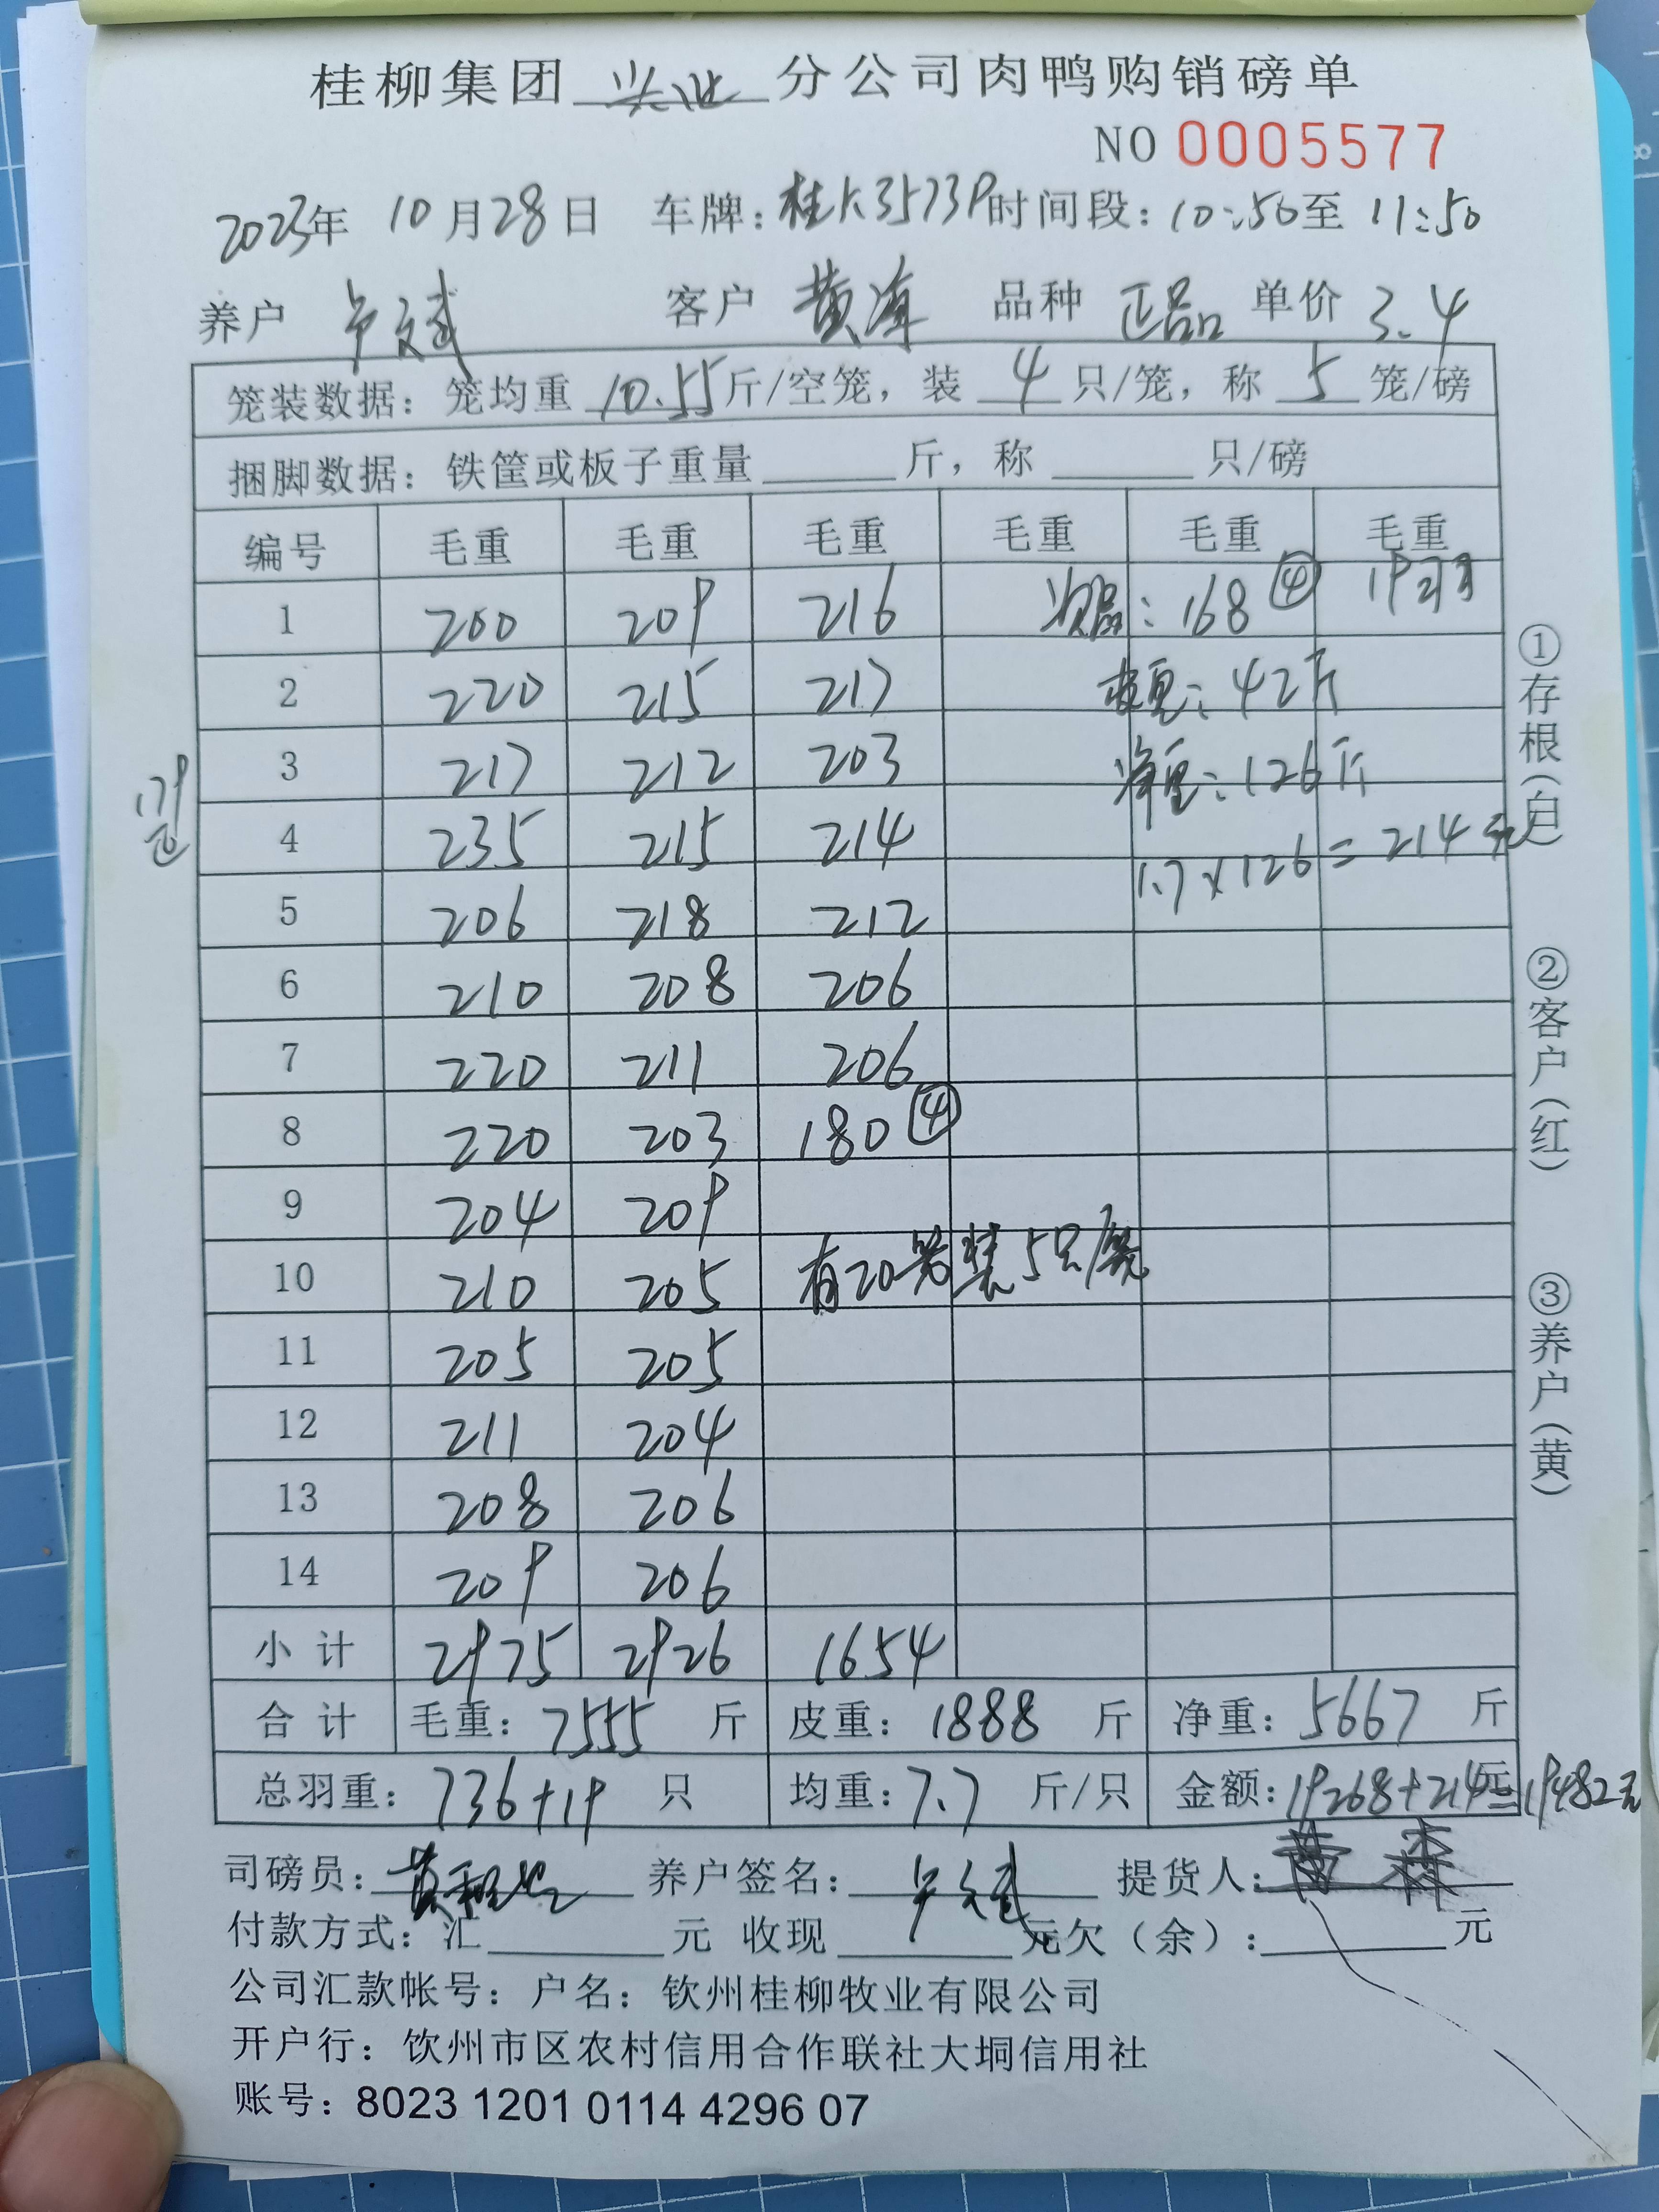 桂柳集团 兴业 分公司肉鸭购销磅单
NO 0005577
2023年 10月28日 车牌：桂K3573P 时间段：10:50至 11:50
养户 卢文斌 客户 黄海 品种 正品 单价 3.4
笼装数据：笼均重 10.55 斤/空笼，装 4 只/笼，称 5 笼/磅
捆脚数据：铁筐或板子重量 斤，称 只/磅
编号 毛重 毛重 毛重 毛重 毛重 毛重
1 200 209 216 次品：168 ④ 19羽
2 220 215 217 皮重：42斤
3 217 212 203 净重：126斤
4 235 215 214 1.7×126=214元
5 206 218 212
6 210 208 206
7 220 211 206
8 220 203 180 ④
9 204 209
10 210 205 有20笼装5只/笼
11 205 205
12 211 204
13 208 206
14 209 206
小计 2975 2926 1654
合计 毛重：7555 斤 皮重：1888 斤 净重：5667 斤
总羽重：736+19 只 均重：7.7 斤/只 金额：19268+214元=19482元
司磅员： 养户签名：卢文斌 提货人：黄森
付款方式：汇 元 收现 元欠（余）： 元
公司汇款帐号：户名：钦州桂柳牧业有限公司
开户行：钦州市区农村信用合作联社大垌信用社
账号：8023 1201 0114 4296 07
179
①存根（白）
②客户（红）
③养户（黄）